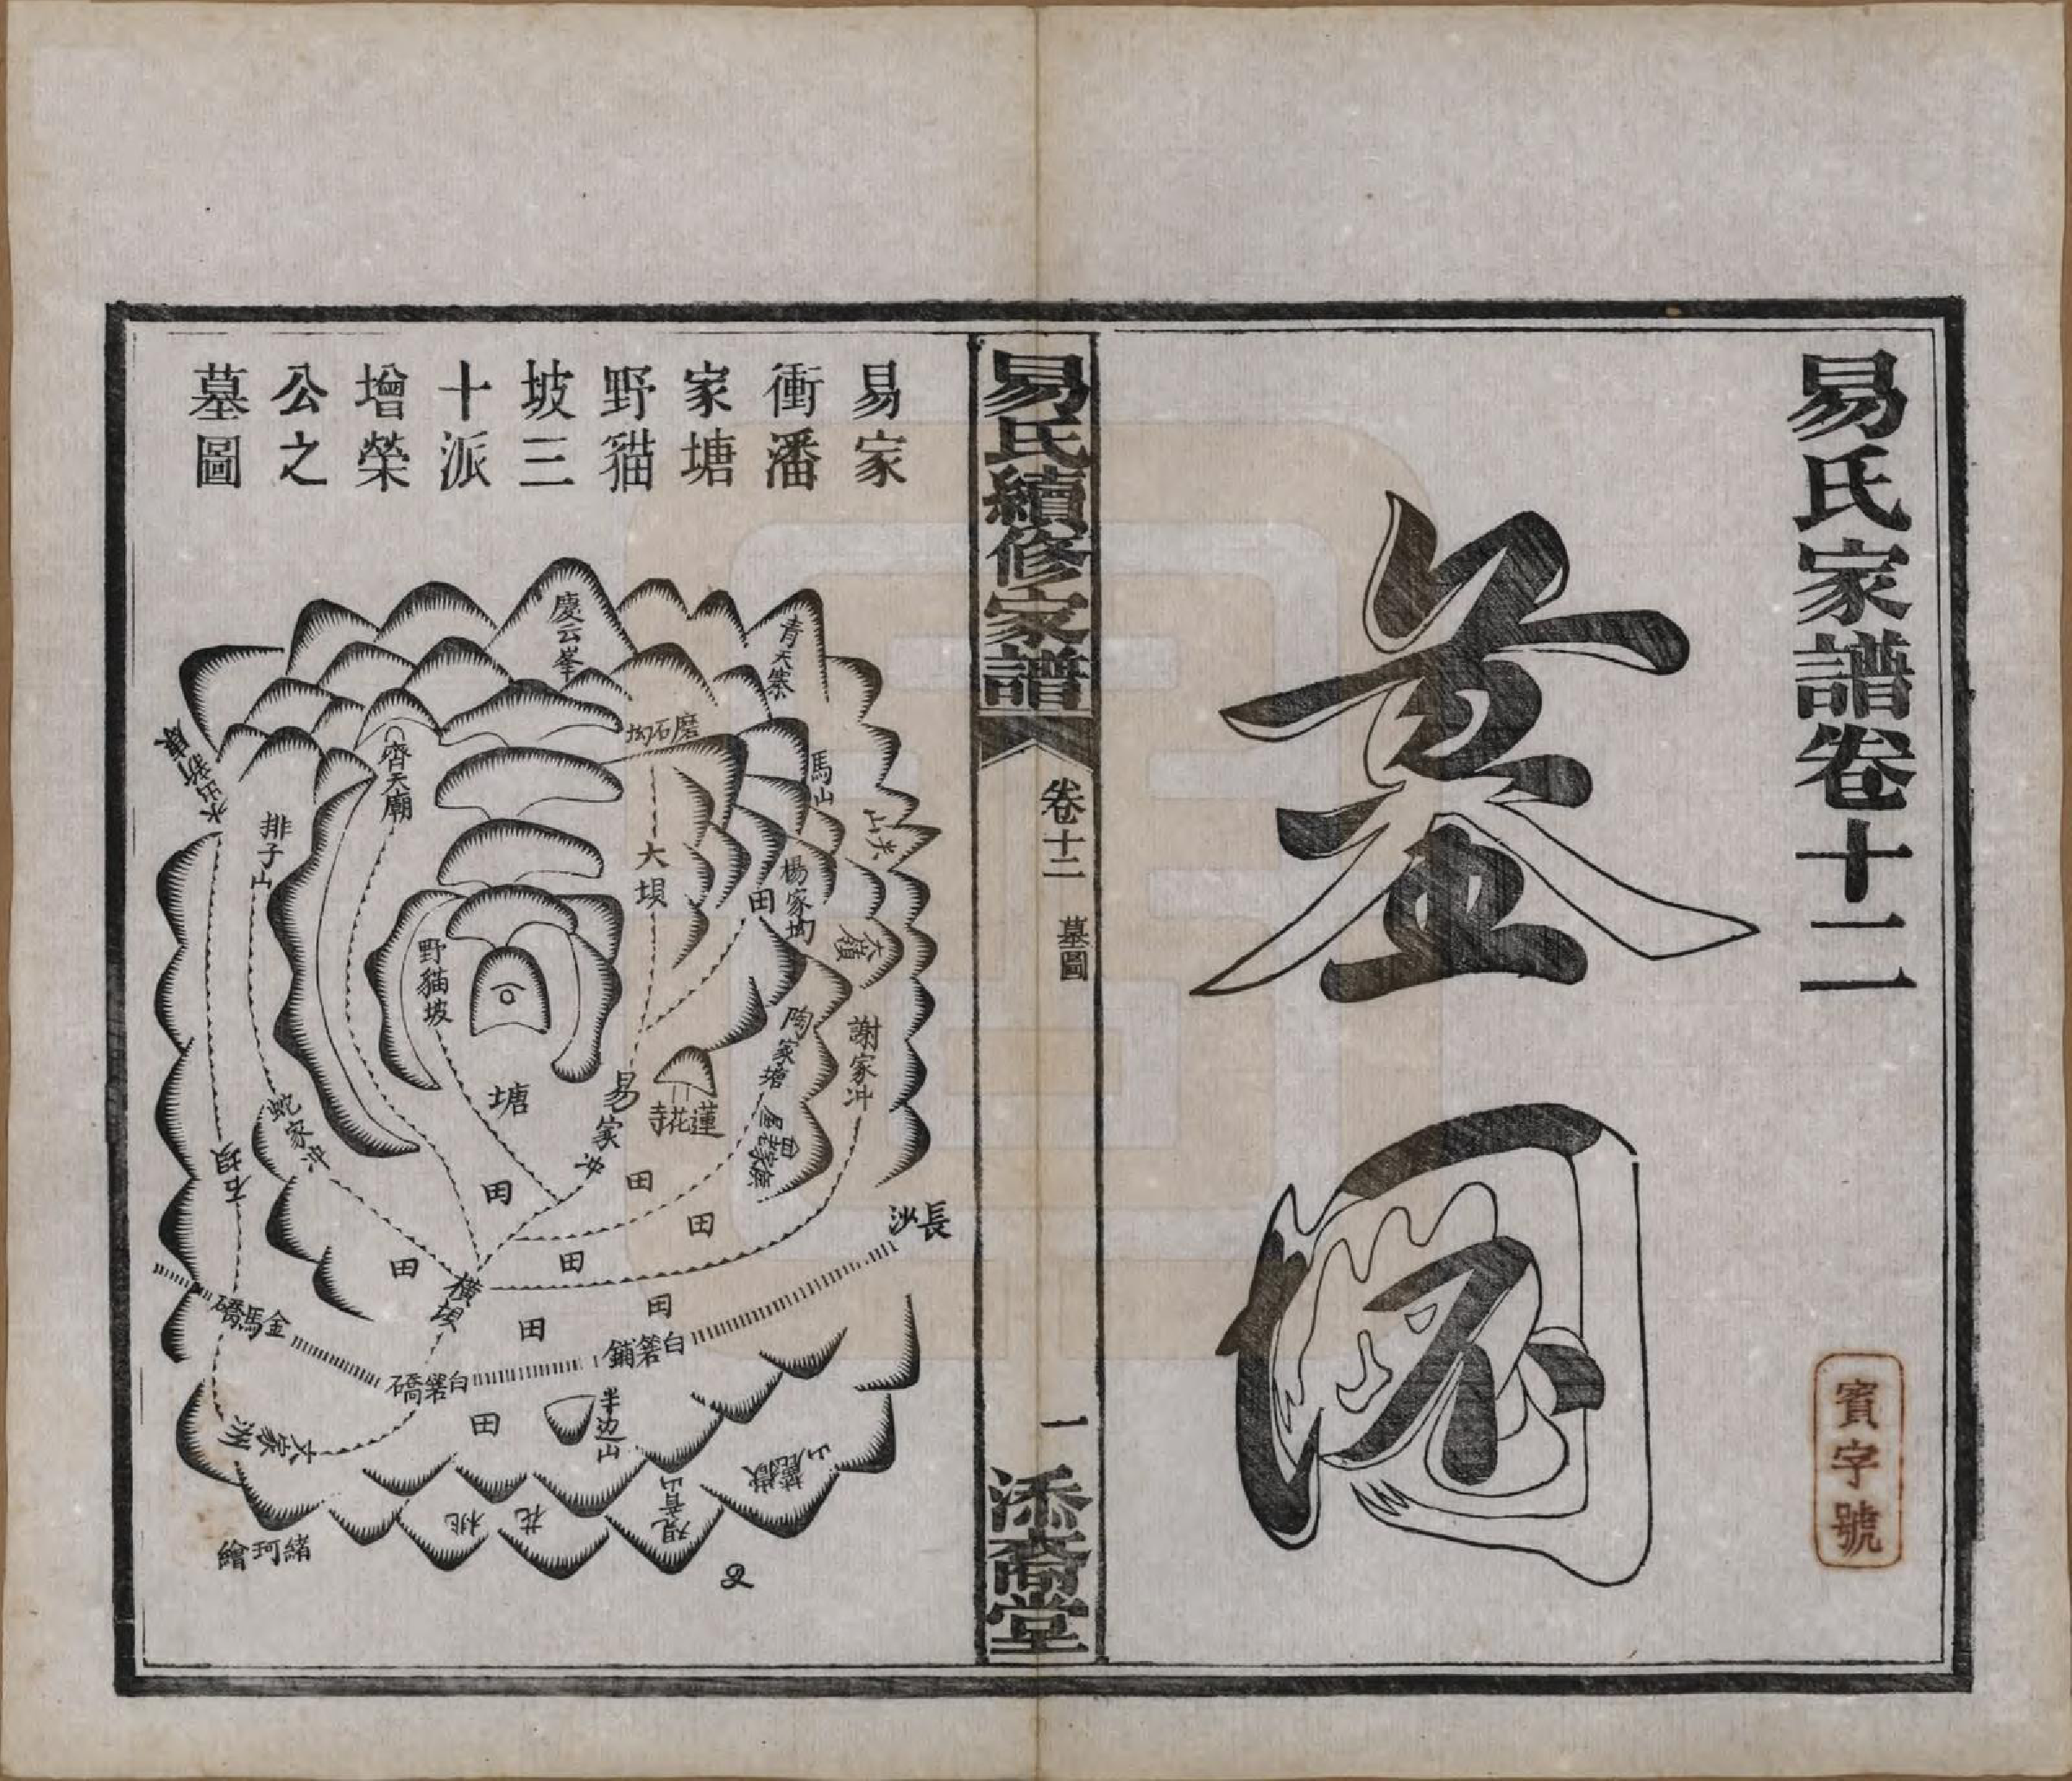 易氏家譜卷十二
墓圖
賓字號
易氏續修家譜
卷十二
墓圖
一
添裔堂
易家
衝潘
家塘
野貓
坡三
十派
增榮
公之
墓圖
慶云峯
青天寨
磨石坳
馬山
尖山
齊天廟
排子山
大坝
楊家坳
田
野貓坡
陶家塘
謝家沖
塘
易家沖
蓮花寺
蛇家沖
石坝
田
田
田
田
田
長沙
橫坝
金馬礄
田
田
白箬鋪
白箬礄
田
半边山
觀音山
桃
花
緒珂繪